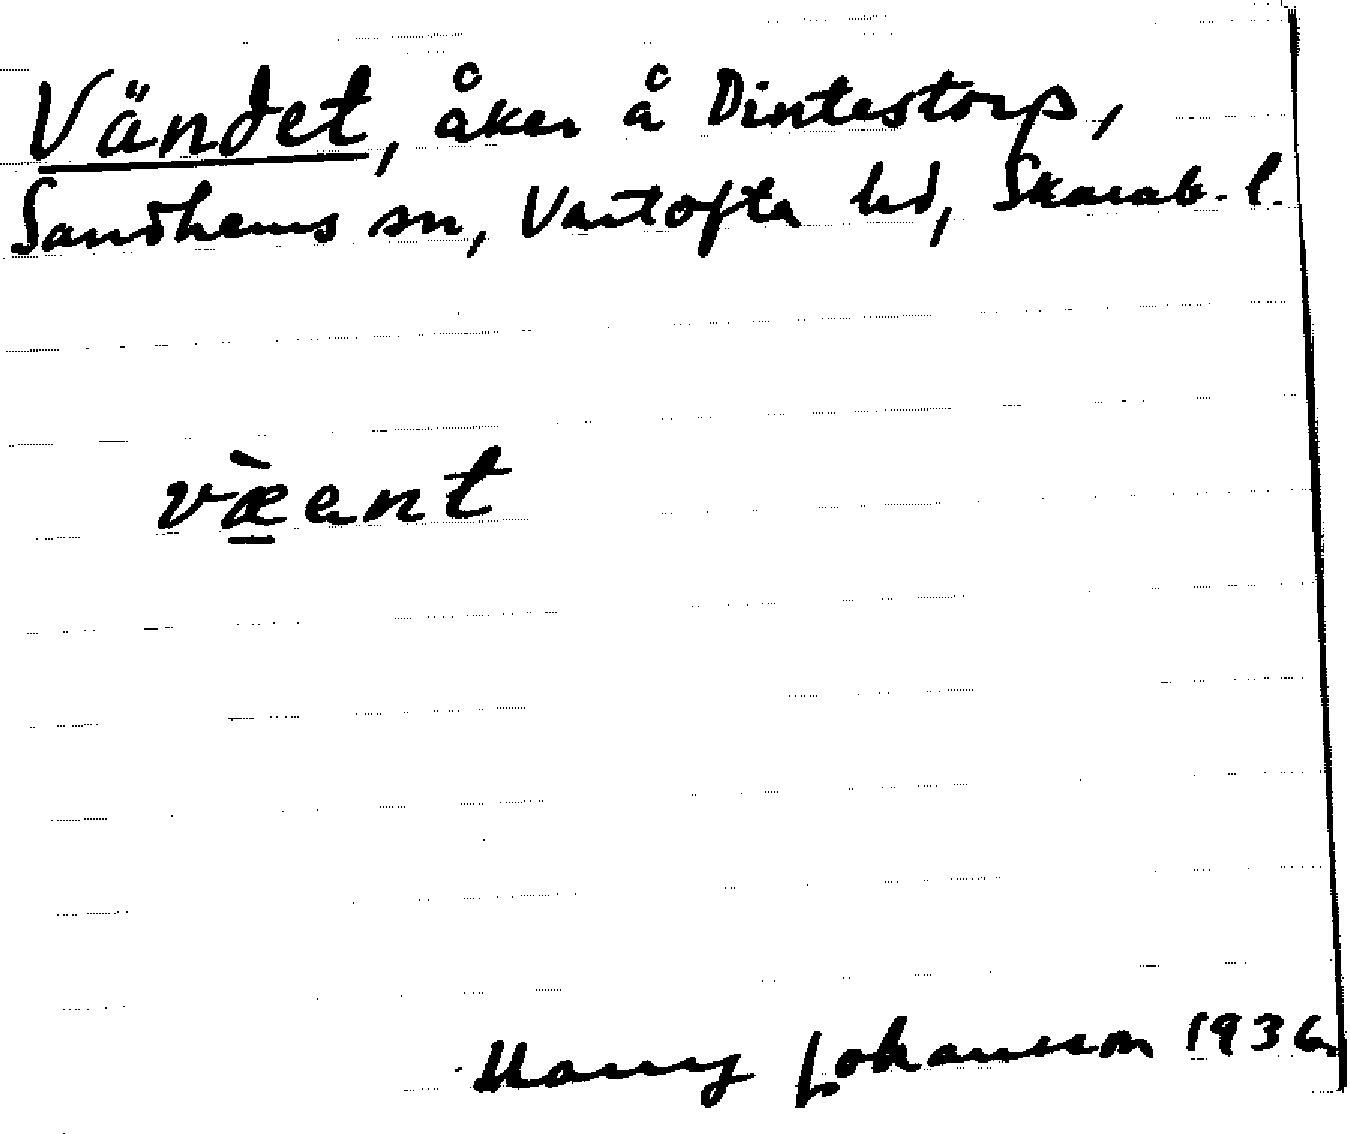 Vändet, åker å Dintestorp,
Sandhems sn, Vartofta hd, Skarab. l.
væ̀ent
Harry Johansson 1936.